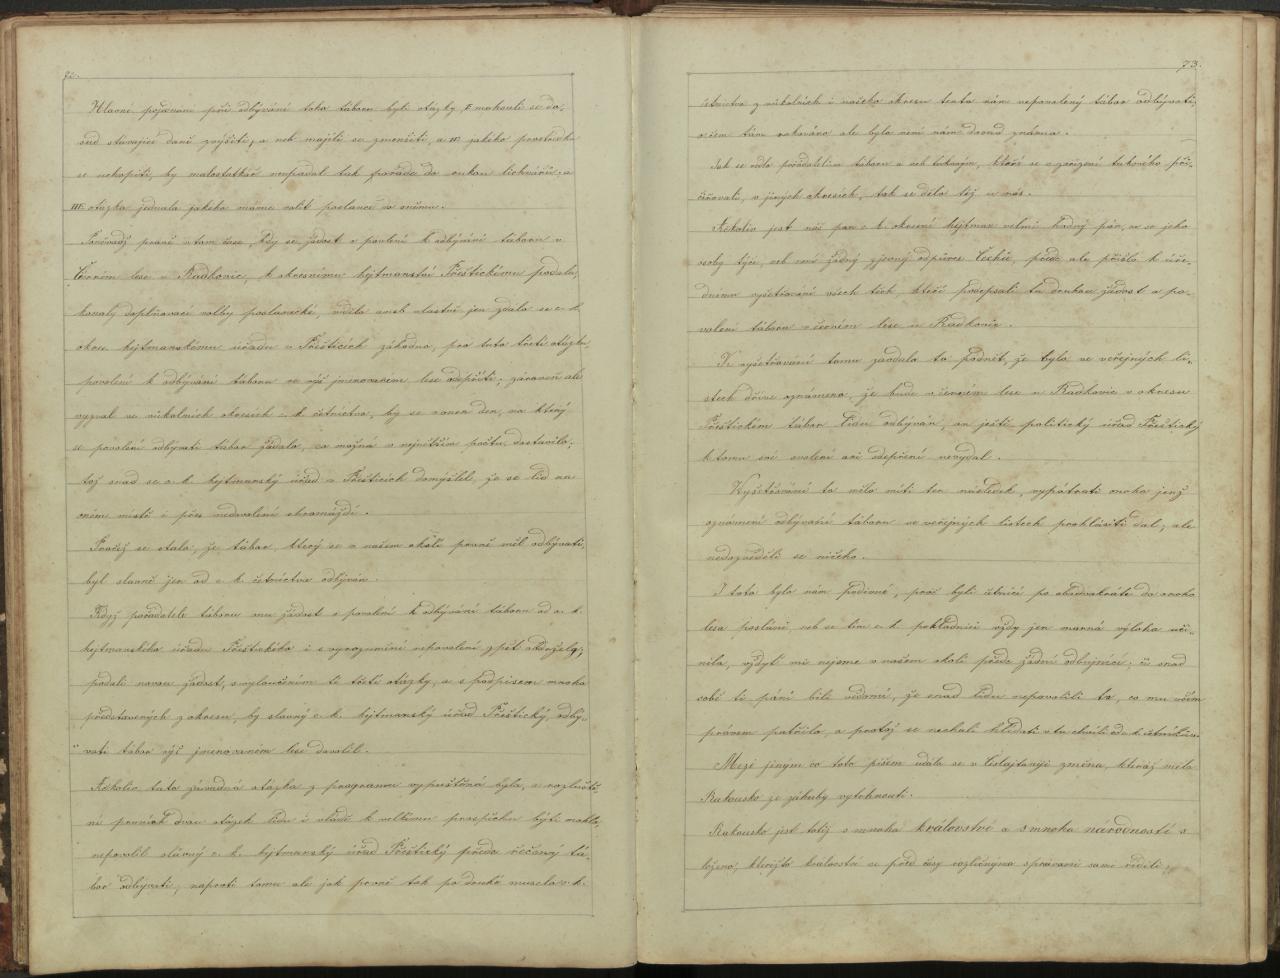 72.
Hlavní pojednání při odbývání toho táboru byli otázky, I. mohouli se do-
sud stávající daně zvýšiti, a neb majíli se zmenšiti, a II. jakého prostředku
se uchopiti, by maloststkář neupadal tak pořáde do rukou lichvářů, a
III. otázka jednala jakého máme voliti poslance do sněmu.
Poněvadž právě v tom čase, kdy se žádost o povolení k odbývání táboru v
Černém lese u Radkovic, k okresnímu hejtmanství Přeštickému podala,
konaly doplňovací volby poslanecké, vidělo aneb vlastně jen zdálo se c. k.
okres. hejtmanskému úřadu v Přešticích závadno, pro tuto třetí otázku,
povolení k odbývání táboru ve výš jmenovaném lese odepříti; zároveň ale
vyzval ve vůkolních okresích c. k. četnictvo, by se onen den, na který
se povolení odbývati tábor žádalo, co možná v největším počtu dostavilo;
tož snad se c. k. hejtmanský úřad v Přešticích domýšlel, že se lid na
oném místě i přes nedovolení shromáždí.
Pročež se stalo, že tábor, který se v našem okolí prvně měl odbývati,
byl slavně jen od c. k. četnictva odbýván.
Když pořadatelé táboru mu žádost o povolení k odbývání táboru od c. k.
hejtmanského úřadu Přeštického i s vyrozumění nepovolení zpět obdrželi,
podali novou žádost, s vyloučením té třetí otázky, a s podpisem mnoha
představených z okresu, by slavný c. k. hejtmanský úřad Přeštický, odbý-
vati tábor výš jmenovaném lese dovolil.
Ačkoliv tato závadná otázka z programu vypuštěna byla, a rozluště-
ní prvních dvou otázek lidu i vládě k velikému prospěchu býti mohlo,
nepovolil slavný c. k. hejtmanský úřad Přeštický předce řečený tá-
bor odbývati, naproti tomu ale jak prvně tak po druhé muselo c. k.
73.
četnictvo z vůkolních i našeho okresu tento nám nepovolený tábor odbývati,
o čem tam rokováno ale bylo není nám dosud známo.
Jak se vedlo pořadatelům táboru a neb takovým, kteří se o zařízení takového při-
čiňovali, v jiných okresích, tak se dělo též u nás.
Ačkoliv jest náš pan c. k. okresní hejtman velmi hodný pán, co se jeho
osoby týče, neb není žádný zjevný odpůrce Čechů, předc ale přišlo k úře-
dnímu vyšetřování všech těch, kteří podepsali tu druhou žádost o po-
volení táboru v černém lese u Radkovic.
K vyšetřování tomu zavdalo to podnět, že bylo ve veřejných li-
stech dříve oznámeno, že bude v černém lese u Radkovic v okresu
Přeštickém tábor lidu odbýván, an ještě politický úřad Přeštický
k tomu své svolení ani odepření nevydal.
Vyšetřování to mělo míti ten následek, vypátrati onoho jenž
oznámení odbývání táboru ve veřejných listech prohlásiti dal, ale
nedozvěděli se ničeho.
I toto bylo nám podivné, proč byli četníci po obadvakráte do onoho
lesa posláni, neb se tím c. k. pokladnici vždy jen marná výloha uči-
nila, vždyť mi nejsme v našem okolí předc žádní odbojníci; či snad
sobě ti páni bili vědomi, že snad lidu nepovolili to, co mu vším
právem patřilo, a protož se nechali hledati v tu chvíli od c. k. četníků.
Mezi jiným co toto píšem udála se v Cislajtanii změna, kteráž měla
Rakousko ze záhuby vytrhnouti.
Rakousko jest totiž s mnoha království a s mnoha národností s
loženo; kterýžto království se před časy rozličnýma správami samé řídili;